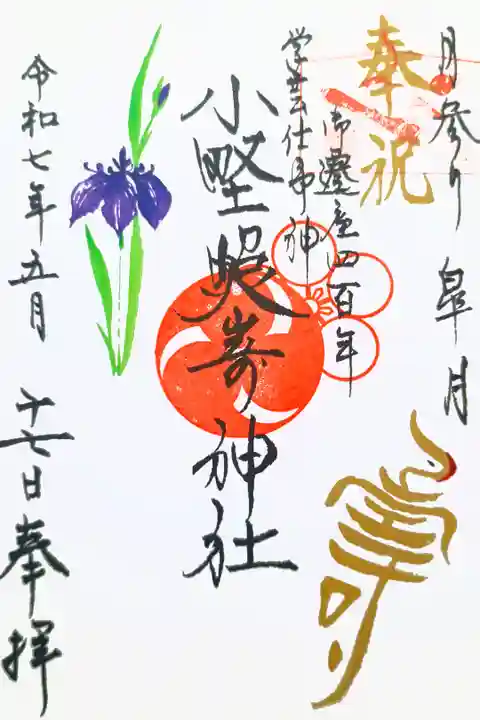 月参り 皐月
奉祝
御遷座四百年
学芸仕事神
寿
小野照嵜神社
令和七年五月
十七日奉拝